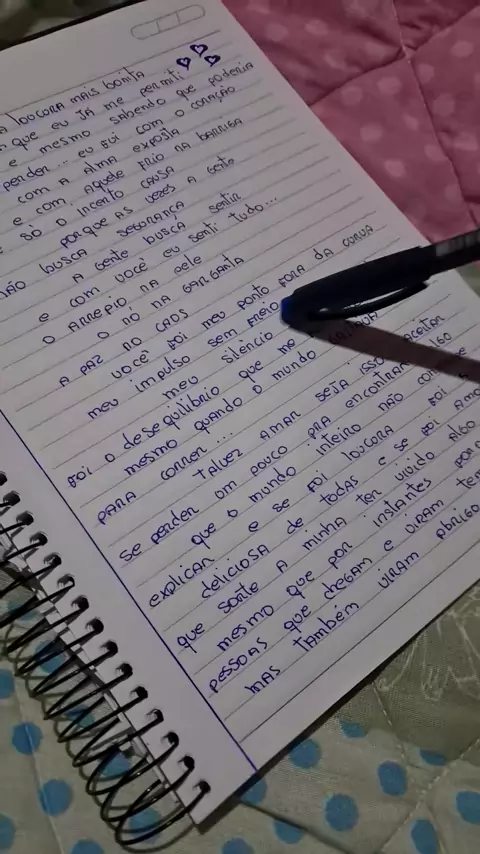 A LOUCURA MAIS BONITA
QUE EU JÁ ME PERMITI
E MESMO SABENDO QUE PODERIA
PERDER... EU FUI COM O CORAÇÃO
COM A ALMA EXPOSTA
E COM AQUELE FRIO NA BARRIGA
SÓ O INCERTO CAUSA
PORQUE AS VEZES A GENTE
NÃO BUSCA SEGURANÇA
A GENTE BUSCA SENTIR
E COM VOCÊ EU SENTI TUDO...
O ARREPIO NA PELE
O NÓ NA GARGANTA
A PAZ NO CAOS
VOCÊ FOI MEU PONTO FORA DA CURVA
MEU IMPULSO SEM FREIO
MEU SILÊNCIO
FOI O DESEQUILÍBRIO QUE ME
MESMO QUANDO O MUNDO
PARA CORRER...
TALVEZ AMAR SEJA ISSO ACEITAR
SE PERDER UM POUCO PRA ENCONTRAR ALGO
QUE O MUNDO INTEIRO NÃO
EXPLICAR E SE FOI LOUCURA FOI A
DELICIOSA DE TODAS E SE FOI AMOR
QUE SORTE A MINHA TER VIVIDO ALGO
MESMO QUE POR INSTANTES
PESSOAS QUE CHEGAM E VIRAM
MAS TAMBÉM VIRAM ABRIGO